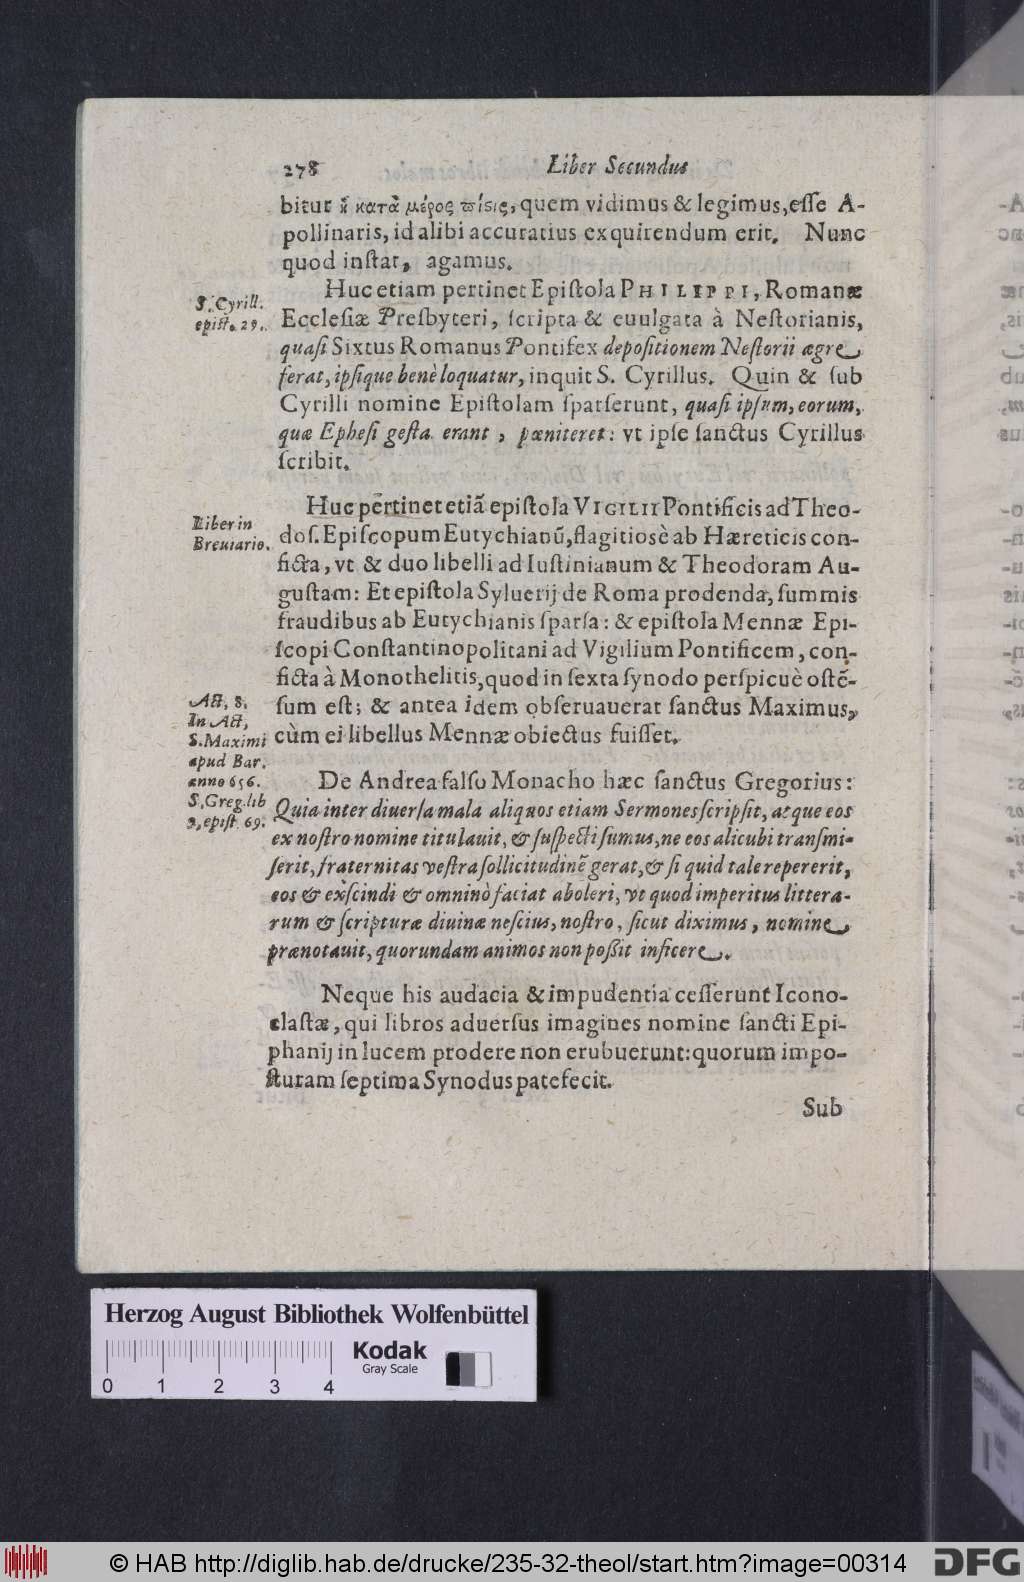 278 Liber Secundus
bitur ἡ κατὰ μέρος πίςις, quem vidimus & legimus, eſſe A-
pollinaris, id alibi accuratius exquirendum erit. Nunc
quod inſtat, agamus.
Huc etiam pertinet Epiſtola PHILIPPI, Romanæ
S. Cyrill.
epiſt. 29.
Eccleſiæ Presbyteri, ſcripta & euulgata à Neſtorianis,
quaſi Sixtus Romanus Pontifex depoſitionem Neſtorii ægre
ferat, ipſique benè loquatur, inquit S. Cyrillus. Quin & ſub
Cyrilli nomine Epiſtolam ſparſerunt, quaſi ipſum, eorum,
quæ Epheſi geſta erant, pœniteret: vt ipſe ſanctus Cyrillus
ſcribit.
Huc pertinet etiã epiſtola VIGILII Pontificis ad Theo-
Liber in
Breuiario.
doſ. Epiſcopum Eutychianũ, flagitiosè ab Hæreticis con-
ficta, vt & duo libelli ad Iuſtinianum & Theodoram Au-
guſtam: Et epiſtola Syluerij de Roma prodenda, ſummis
fraudibus ab Eutychianis ſparſa: & epiſtola Mennæ Epi-
ſcopi Conſtantinopolitani ad Vigilium Pontificem, con-
ficta à Monothelitis, quod in ſexta ſynodo perſpicuè oſtẽ-
ſum eſt; & antea idem obſeruauerat ſanctus Maximus,
cùm ei libellus Mennæ obiectus fuiſſet.
Act, 8.
In Act,
S. Maximi
apud Bar.
anno 656.
S. Greg. lib
9, epiſt. 69.
De Andrea falſo Monacho hæc ſanctus Gregorius:
Quia inter diuerſa mala aliquos etiam Sermones ſcripſit, atque eos
ex noſtro nomine titulauit, & ſuſpecti ſumus, ne eos alicubi tranſmi-
ſerit, fraternitas veſtra ſollicitudinẽ gerat, & ſi quid tale repererit,
eos & exſcindi & omninò faciat aboleri, vt quod imperitus littera-
rum & ſcripturæ diuinæ neſcius, noſtro, ſicut diximus, nomine
prænotauit, quorundam animos non poßit inficere.
Neque his audacia & impudentia ceſſerunt Icono-
claſtæ, qui libros aduerſus imagines nomine ſancti Epi-
phanij in lucem prodere non erubuerunt: quorum impo-
ſturam ſeptima Synodus patefecit.
Sub
Herzog August Bibliothek Wolfenbüttel
Kodak
Gray Scale
0 1 2 3 4
© HAB http://diglib.hab.de/drucke/235-32-theol/start.htm?image=00314
DFG